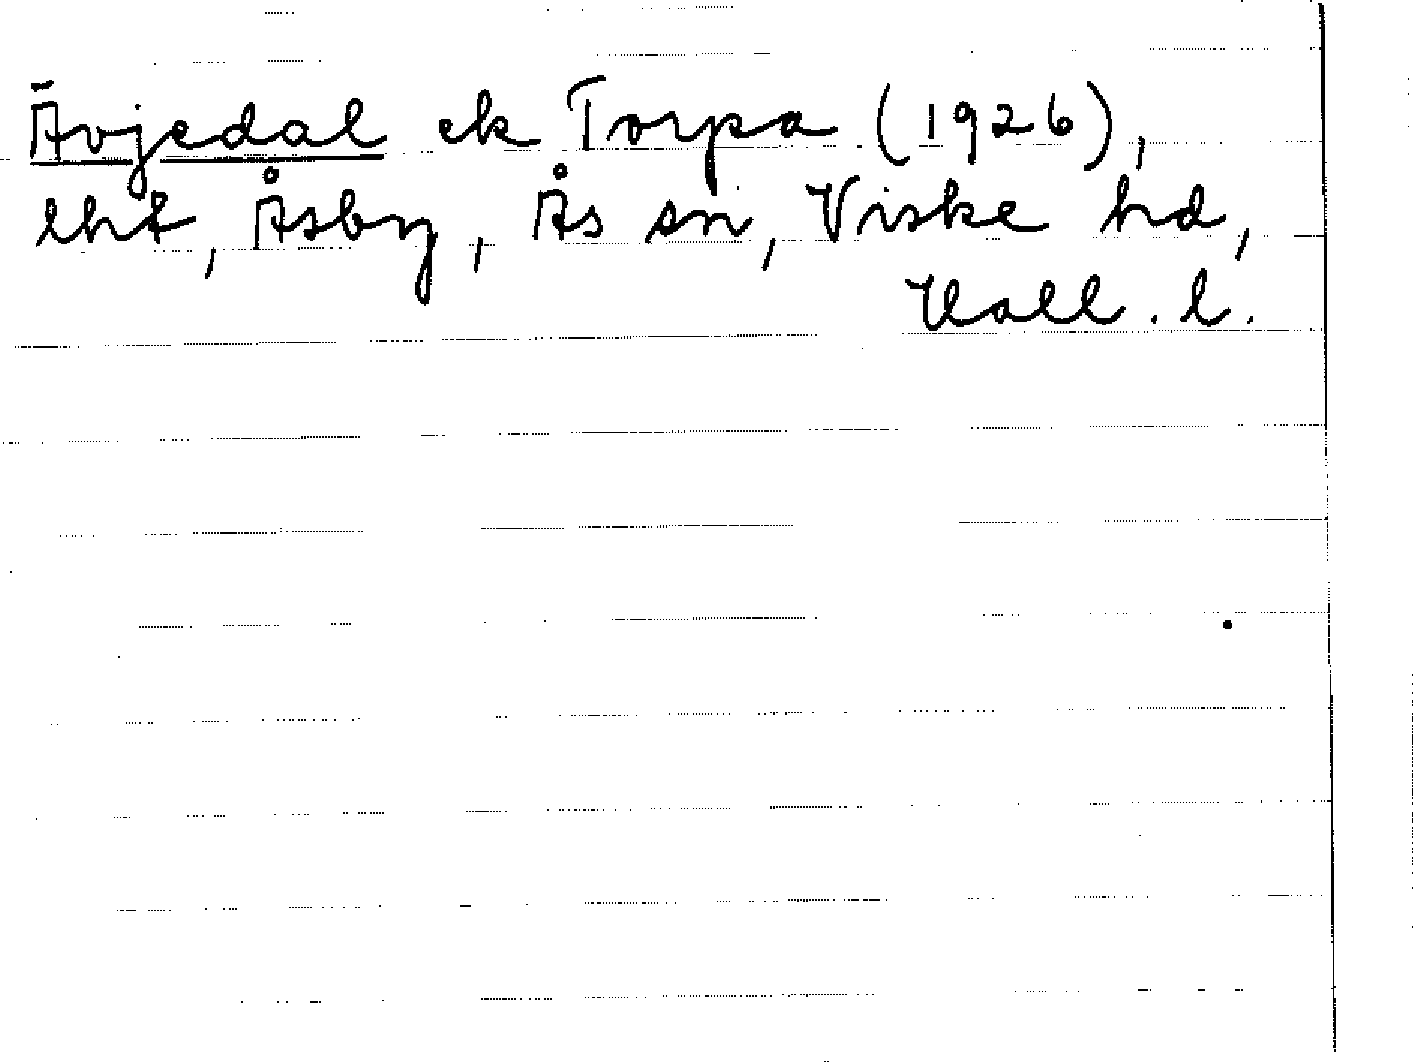 Ävjedal ek Torpa (1926),
lht, Åsby, Ås sn, Viske hd,
Hall. l.